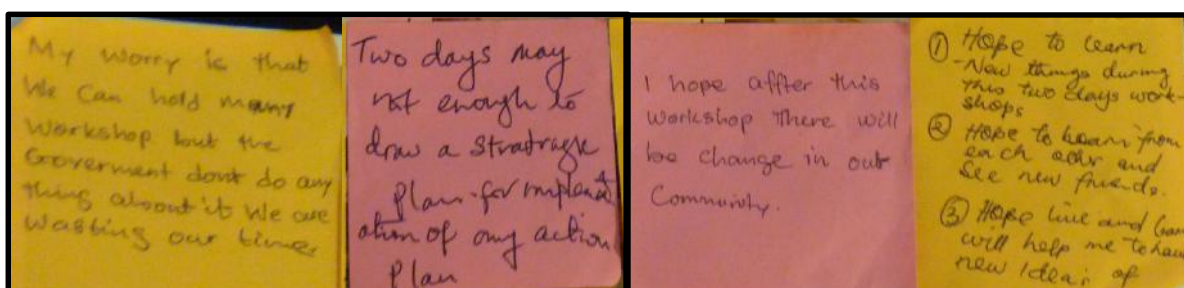 My worry is that
We Can hold many
Workshop but the
Goverment dont do any
thing about it We are
Wasting our time,
Two days may
not enough to
draw a Stratragic
Plan for implement
ation of any action
Plan
I hope affter this
workshop there will
be change in our
Community.
① Hope to learn
-New things during
this two days work-
shops
② Hope to learn from
each other and
See new friends.
③ Hope live and
will help me to have
new Idea's of